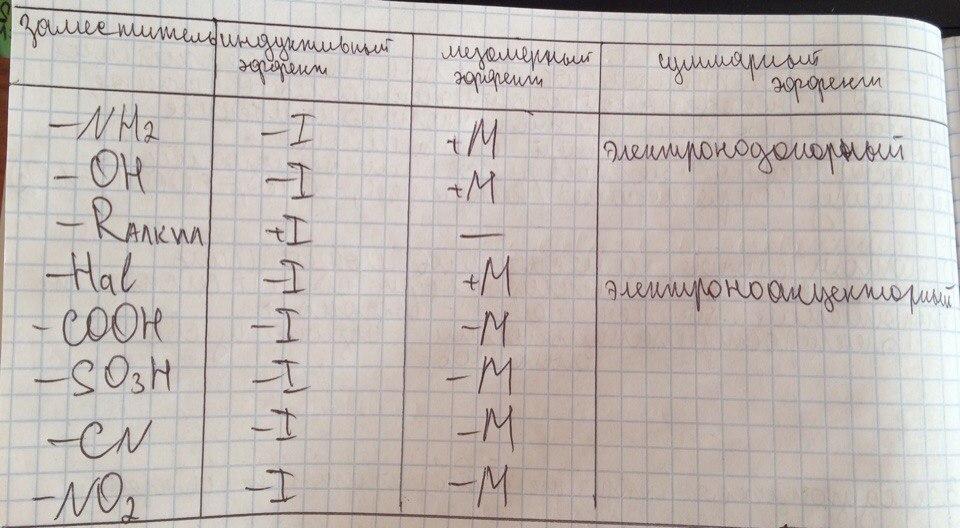 Заместитель индуктивный эффект мезомерный эффект суммарный эффект
-NH2 -I +M электронодонорный
-OH -I +M
-Rалкил +I —
-Hal -I +M электроноакцекторный
-COOH -I -M
-SO3H -I -M
-CN -I -M
-NO2 -I -M